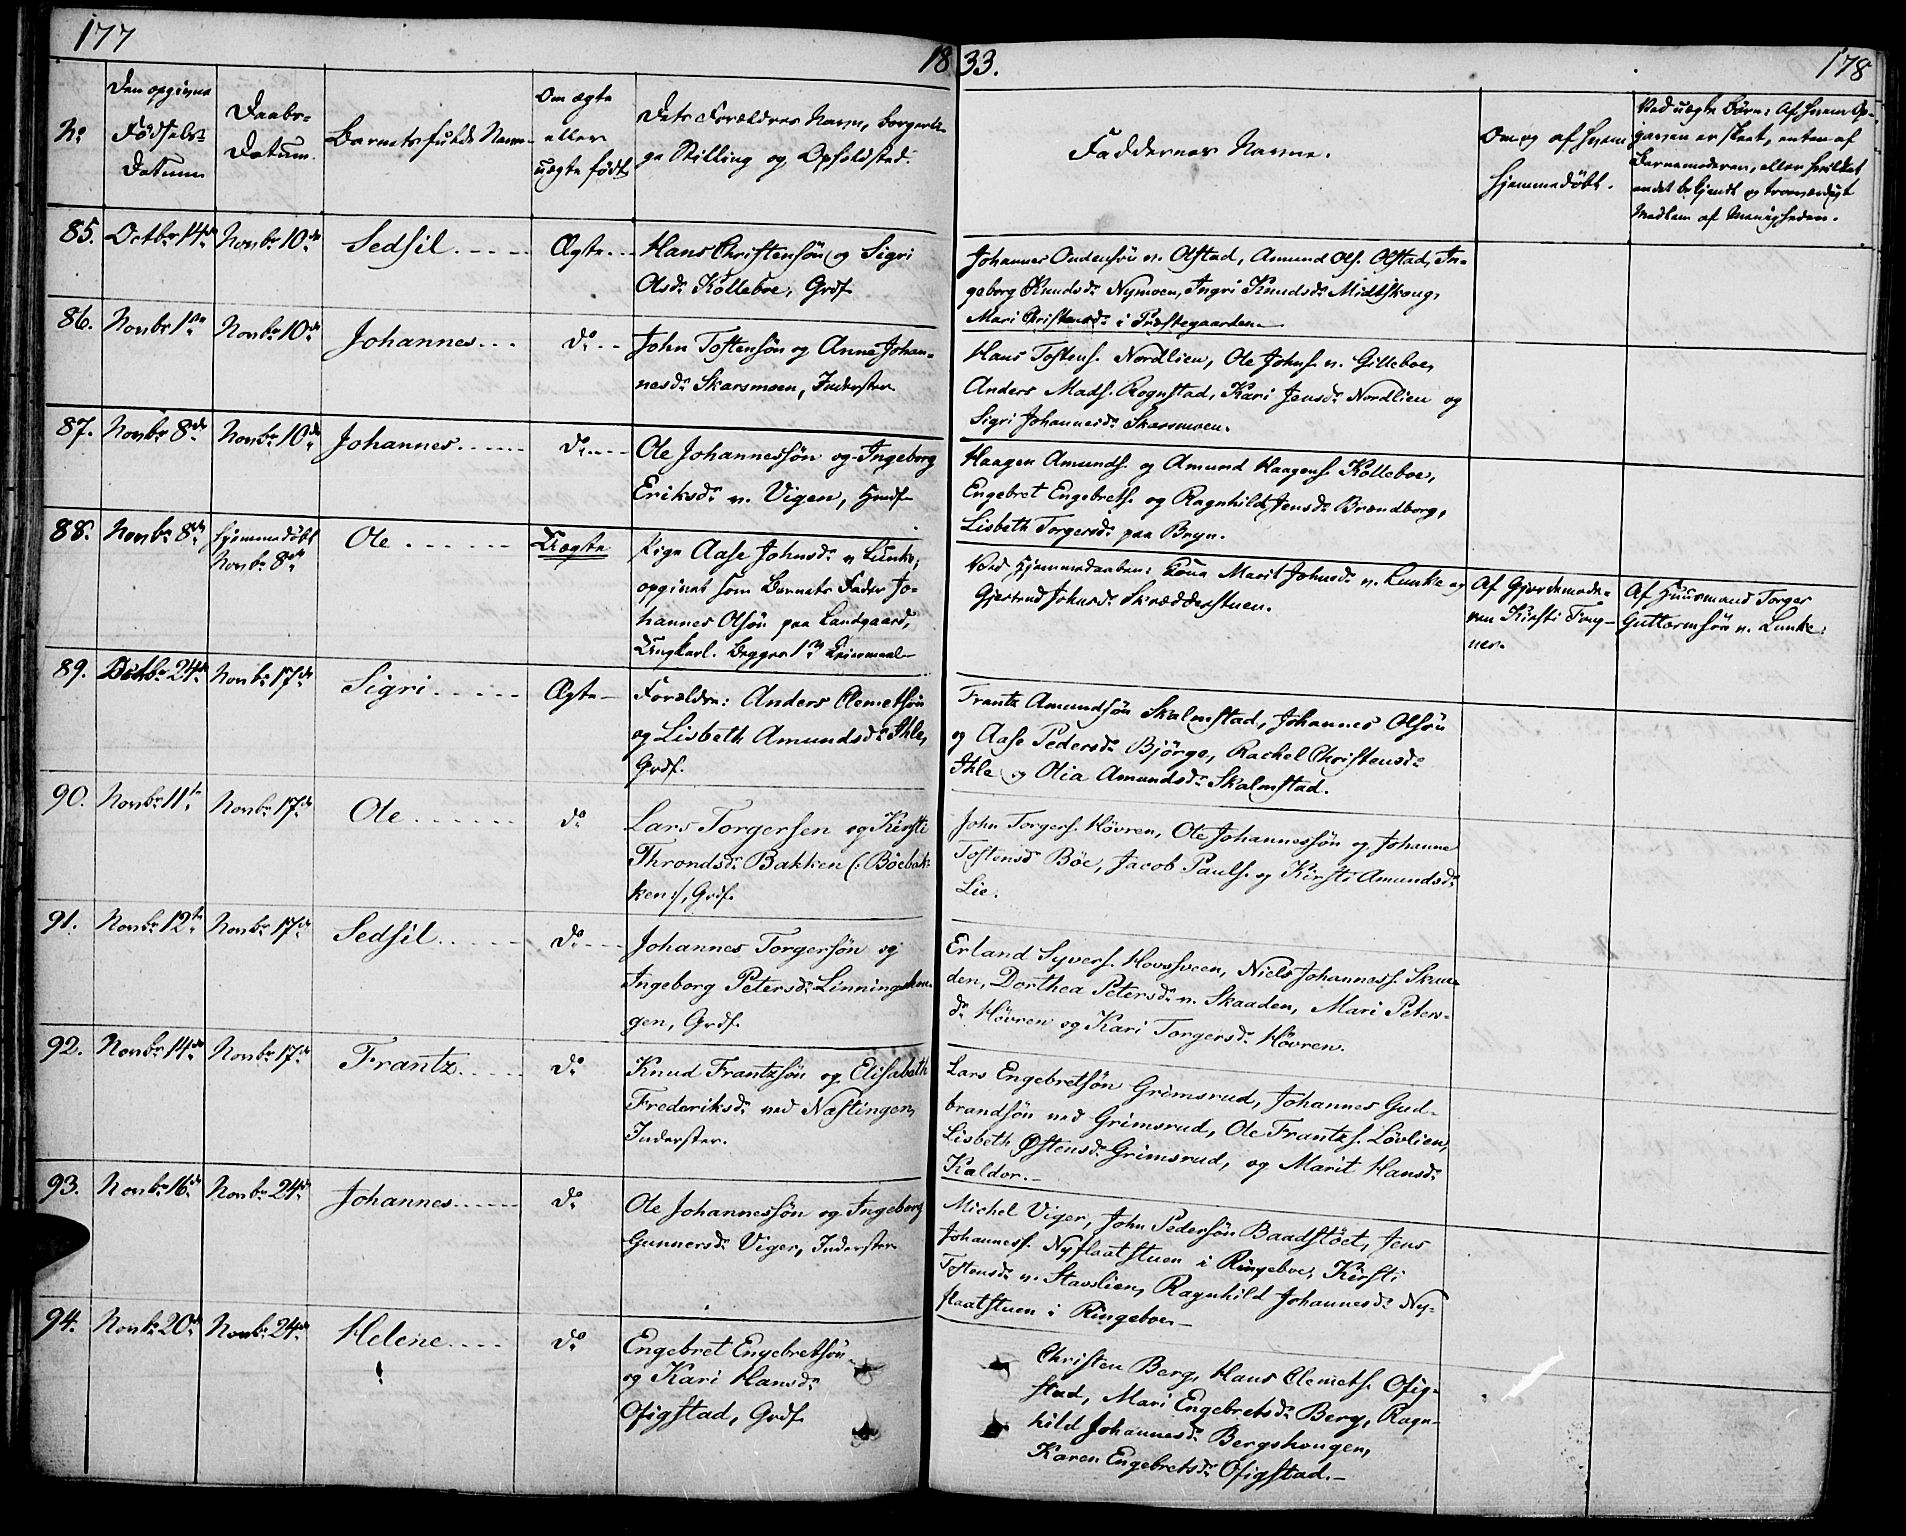 177
18 33.
178
No
Den opgivne Fødsels-Datum
Daabs-Datum.
Barnets fulde Navn
Om ægte eller uægte født
Dets Forældres Navn, borgerli-
ge Stilling og Opholdsted.
Faddernes Navne.
Om og af hvem hjemmedøbt.
Ved uægte Børn: Af hvem Op-
gaven er skeet, enten af
Barnemoderen, eller hvilket
andet bekjendt og troværdigt
Medlem af Menigheden.
85. Octbr 14de Novbr 10de Sedsil Ægte
Hans Christensøn og Sigri
Olsdr Kolleboe, Grdf
Johannes Oudensøn n. Olstad, Amund Ols. Olstad, In-
geborg Knudsdr Nymoen, Ingri Knudsdr Midtskoug,
Mari Christensdr i Præstegaarden
86. Novbr 1ste Novbr 10de Johannes do
John Tostensøn og Anne Johan-
nesdr Skarsmoen, Inderster
Hans Tostens. Nordlien, Ole Johns. n. Gilleboe,
Anders Mads. Rognstad, Kari Jensdr Nordlien og
Sigri Johannesdr Skarsmoen.
87. Novbr 8de Novbr 10de Johannes do
Ole Johannessøn og Ingeborg
Eriksdr n. Vigen, Hmdf
Haagen Amunds. og Amund Haagens. Kolleboe,
Engebret Engebrets. og Ragnhild Jensdr Brændborg,
Lisbeth Torgersdr paa Bryn.
88. Novbr 8de Hjemmedøbt Novbr 8de Ole Uægte
Pige Aase Johnsdr n Lunke,
opgivet som Barnets Fader Jo-
hannes Olsøn paa Landgaard,
Ungkarl. Begges 1ste Leiermaal
Ved Hjemmedaaben: Kone Marit Johnsdr n. Lunke og
Gjertrud Johnsdr Skrædderstuen.
Af Gjordemode-
ren Kirsti Tong-
nes.
Af Huusmand Torger
Guttormsøn n. Lunke.
89. Octbr 24de Novbr 17de Sigri Ægte
Forældre: Anders Clemetsøn
og Lisbeth Amundsdr Ihle,
Grdf.
Frantz Amundsøn Skalmstad, Johannes Olsøn
og Aase Pedersdr Bjørge, Rachel Christensdr
Ihle og Olia Amundsdr Skalmstad.
90. Novbr 11te Novbr 17de Ole do
Lars Torgersen og Kirsti
Throndsdr Bakken (: Böebak-
ken :/, Grdf.
John Torgers. Hövren, Ole Johannessøn og Johanne
Tostensdr Böe, Jacob Pauls. og Kirsti Amundsdr
Lie.
91. Novbr 12te Novbr 17de Sedsil do
Johannes Torgersøn og
Ingeborg Petersdr Linningshou-
gen, Grdf.
Erland Syvers. Hovsveen, Niels Johanness. Skaa-
den, Dorthea Petersdr n. Skaaden, Mari Peters-
dr Hövren og Kari Torgersdr Hövren.
92. Novbr 14de Novbr 17de Frantz do
Knud Frantzsøn og Elisabeth
Frederiksdr ned Næstingen,
Inderster.
Lars Engebretsøn Grimsrud, Johannes Gud-
brandsøn ned Grimsrud, Ole Frantzs. Lövlien,
Lisbeth Østensdr Grimsrud, og Marit Hansdr
Kaldor.
93. Novbr 16de Novbr 24de Johannes do
Ole Johannessøn og Ingeborg
Gunnersdr Viger, Inderster
Michel Viger, John Pedersøn Baadstöet, Jens
Johanness. Nyflaatstuen i Ringeboe, Kirsti
Tostensdr n. Stavslien, Ragnhild Johannesdr Ny-
flaatstuen i Ringeboe
94. Novbr 20de Novbr 24de Helene do
Engebret Engebretsøn
og Kari Hansdr
Ofigstad, Grdf.
Christen Berg, Hans Clemets. Ofig-
stad, Mari Engebretsdr Berg, Ragn-
hild Johannesdr Bergshougen,
Karen Engebretsdr Ofigstad.